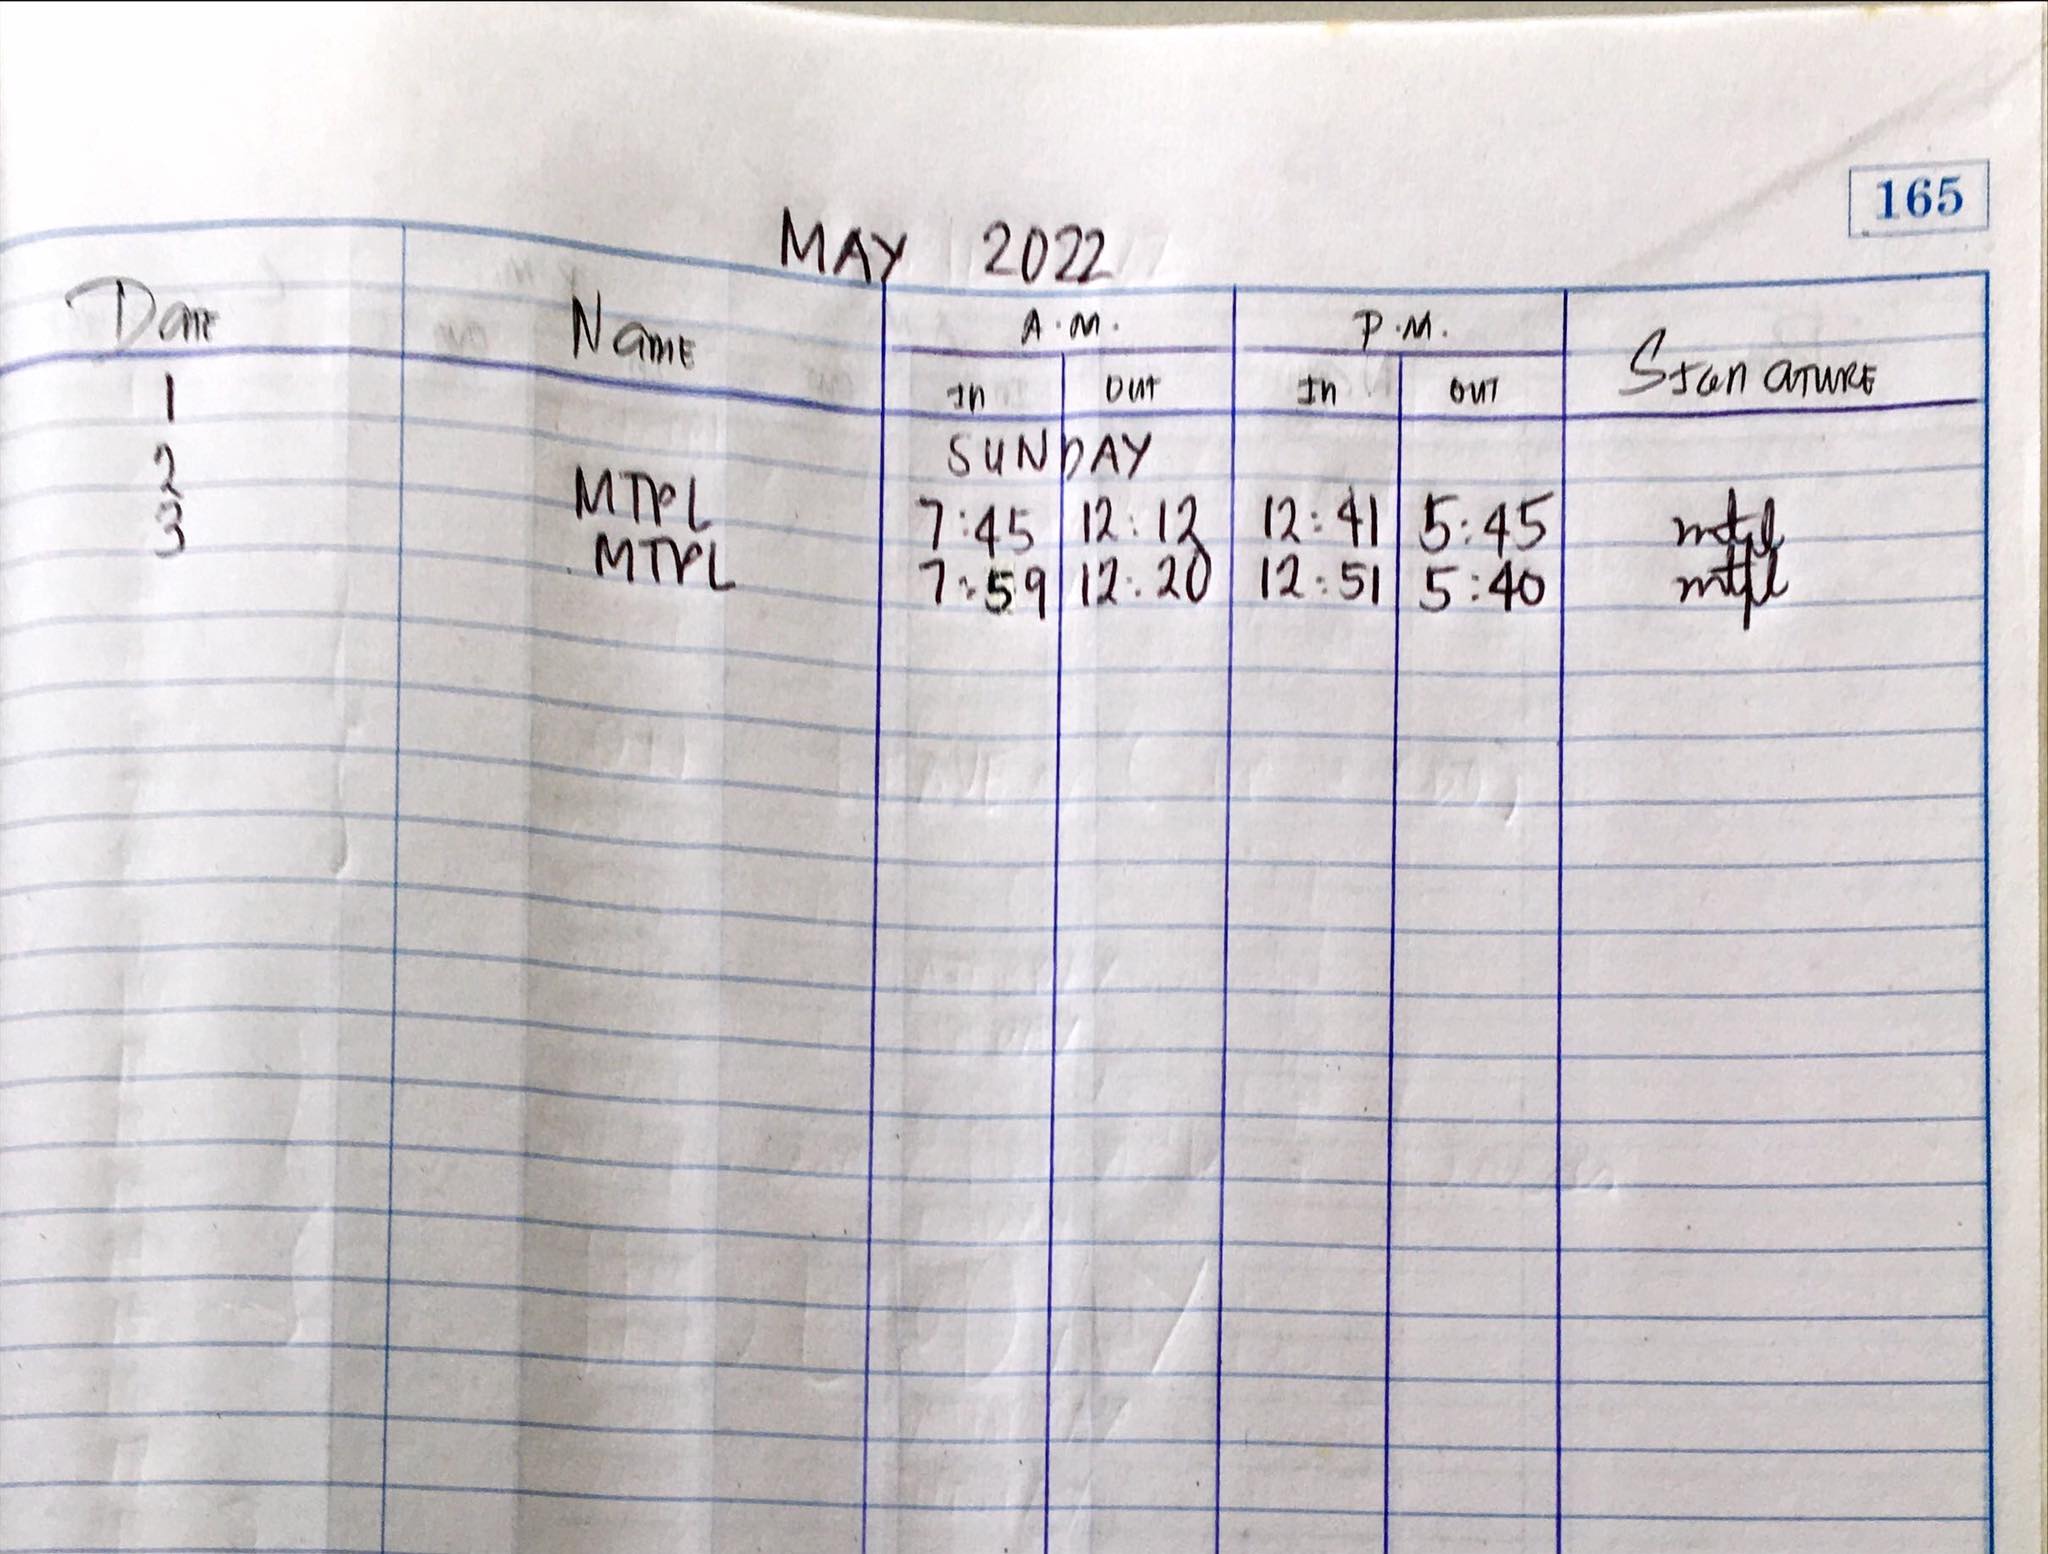 165
MAY 2022
Date Name A.M. P.M. Signature
In Out In Out
1 SUNDAY
2 MTPL 7:45 12:12 12:41 5:45 mtpl
3 MTPL 7:59 12:20 12:51 5:40 mtpl